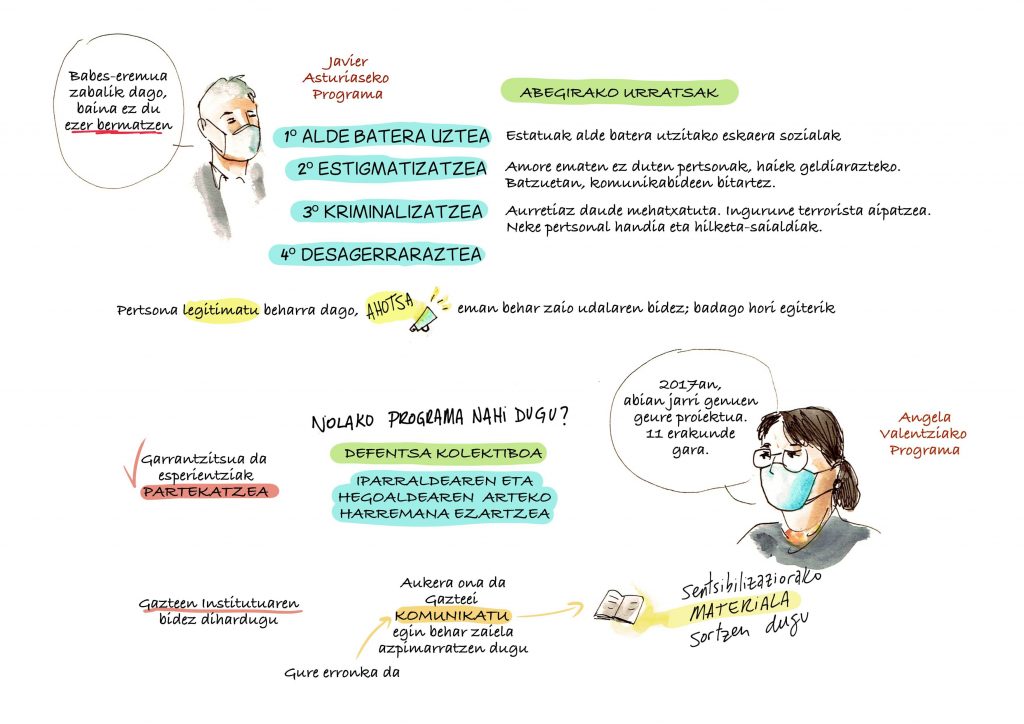 Babes-eremua
zabalik dago,
baina ez du
ezer bermatzen
Javier
Asturiaseko
Programa
ABEGIRAKO URRATSAK
1º ALDE BATERA UZTEA
Estatuak alde batera utzitako eskaera sozialak
2º ESTIGMATIZATZEA
Amore ematen ez duten pertsonak, haiek geldiarazteko.
Batzuetan, komunikabideen bitartez.
3º KRIMINALIZATZEA
Aurretiaz daude mehatxatuta. Ingurune terrorista aipatzea.
Neke pertsonal handia eta hilketa-saialdiak.
4º DESAGERRARAZTEA
Pertsona legitimatu beharra dago, AHOTSA eman behar zaio udalaren bidez; badago hori egiterik
NOLAKO PROGRAMA NAHI DUGU?
Garrantzitsua da
esperientziak
PARTEKATZEA
DEFENTSA KOLEKTIBOA
IPARRALDEAREN ETA
HEGOALDEAREN ARTEKO
HARREMANA EZARTZEA
2017an,
abian jarri genuen
geure proiektua.
11 erakunde
gara.
Angela
Valentziako
Programa
Gazteen Institutuaren
bidez dihardugu
Gure erronka da
Aukera ona da
Gazteei
KOMUNIKATU
egin behar zaiela
azpimarratzen dugu
sentsibilizaziorako
MATERIALA
sortzen dugu